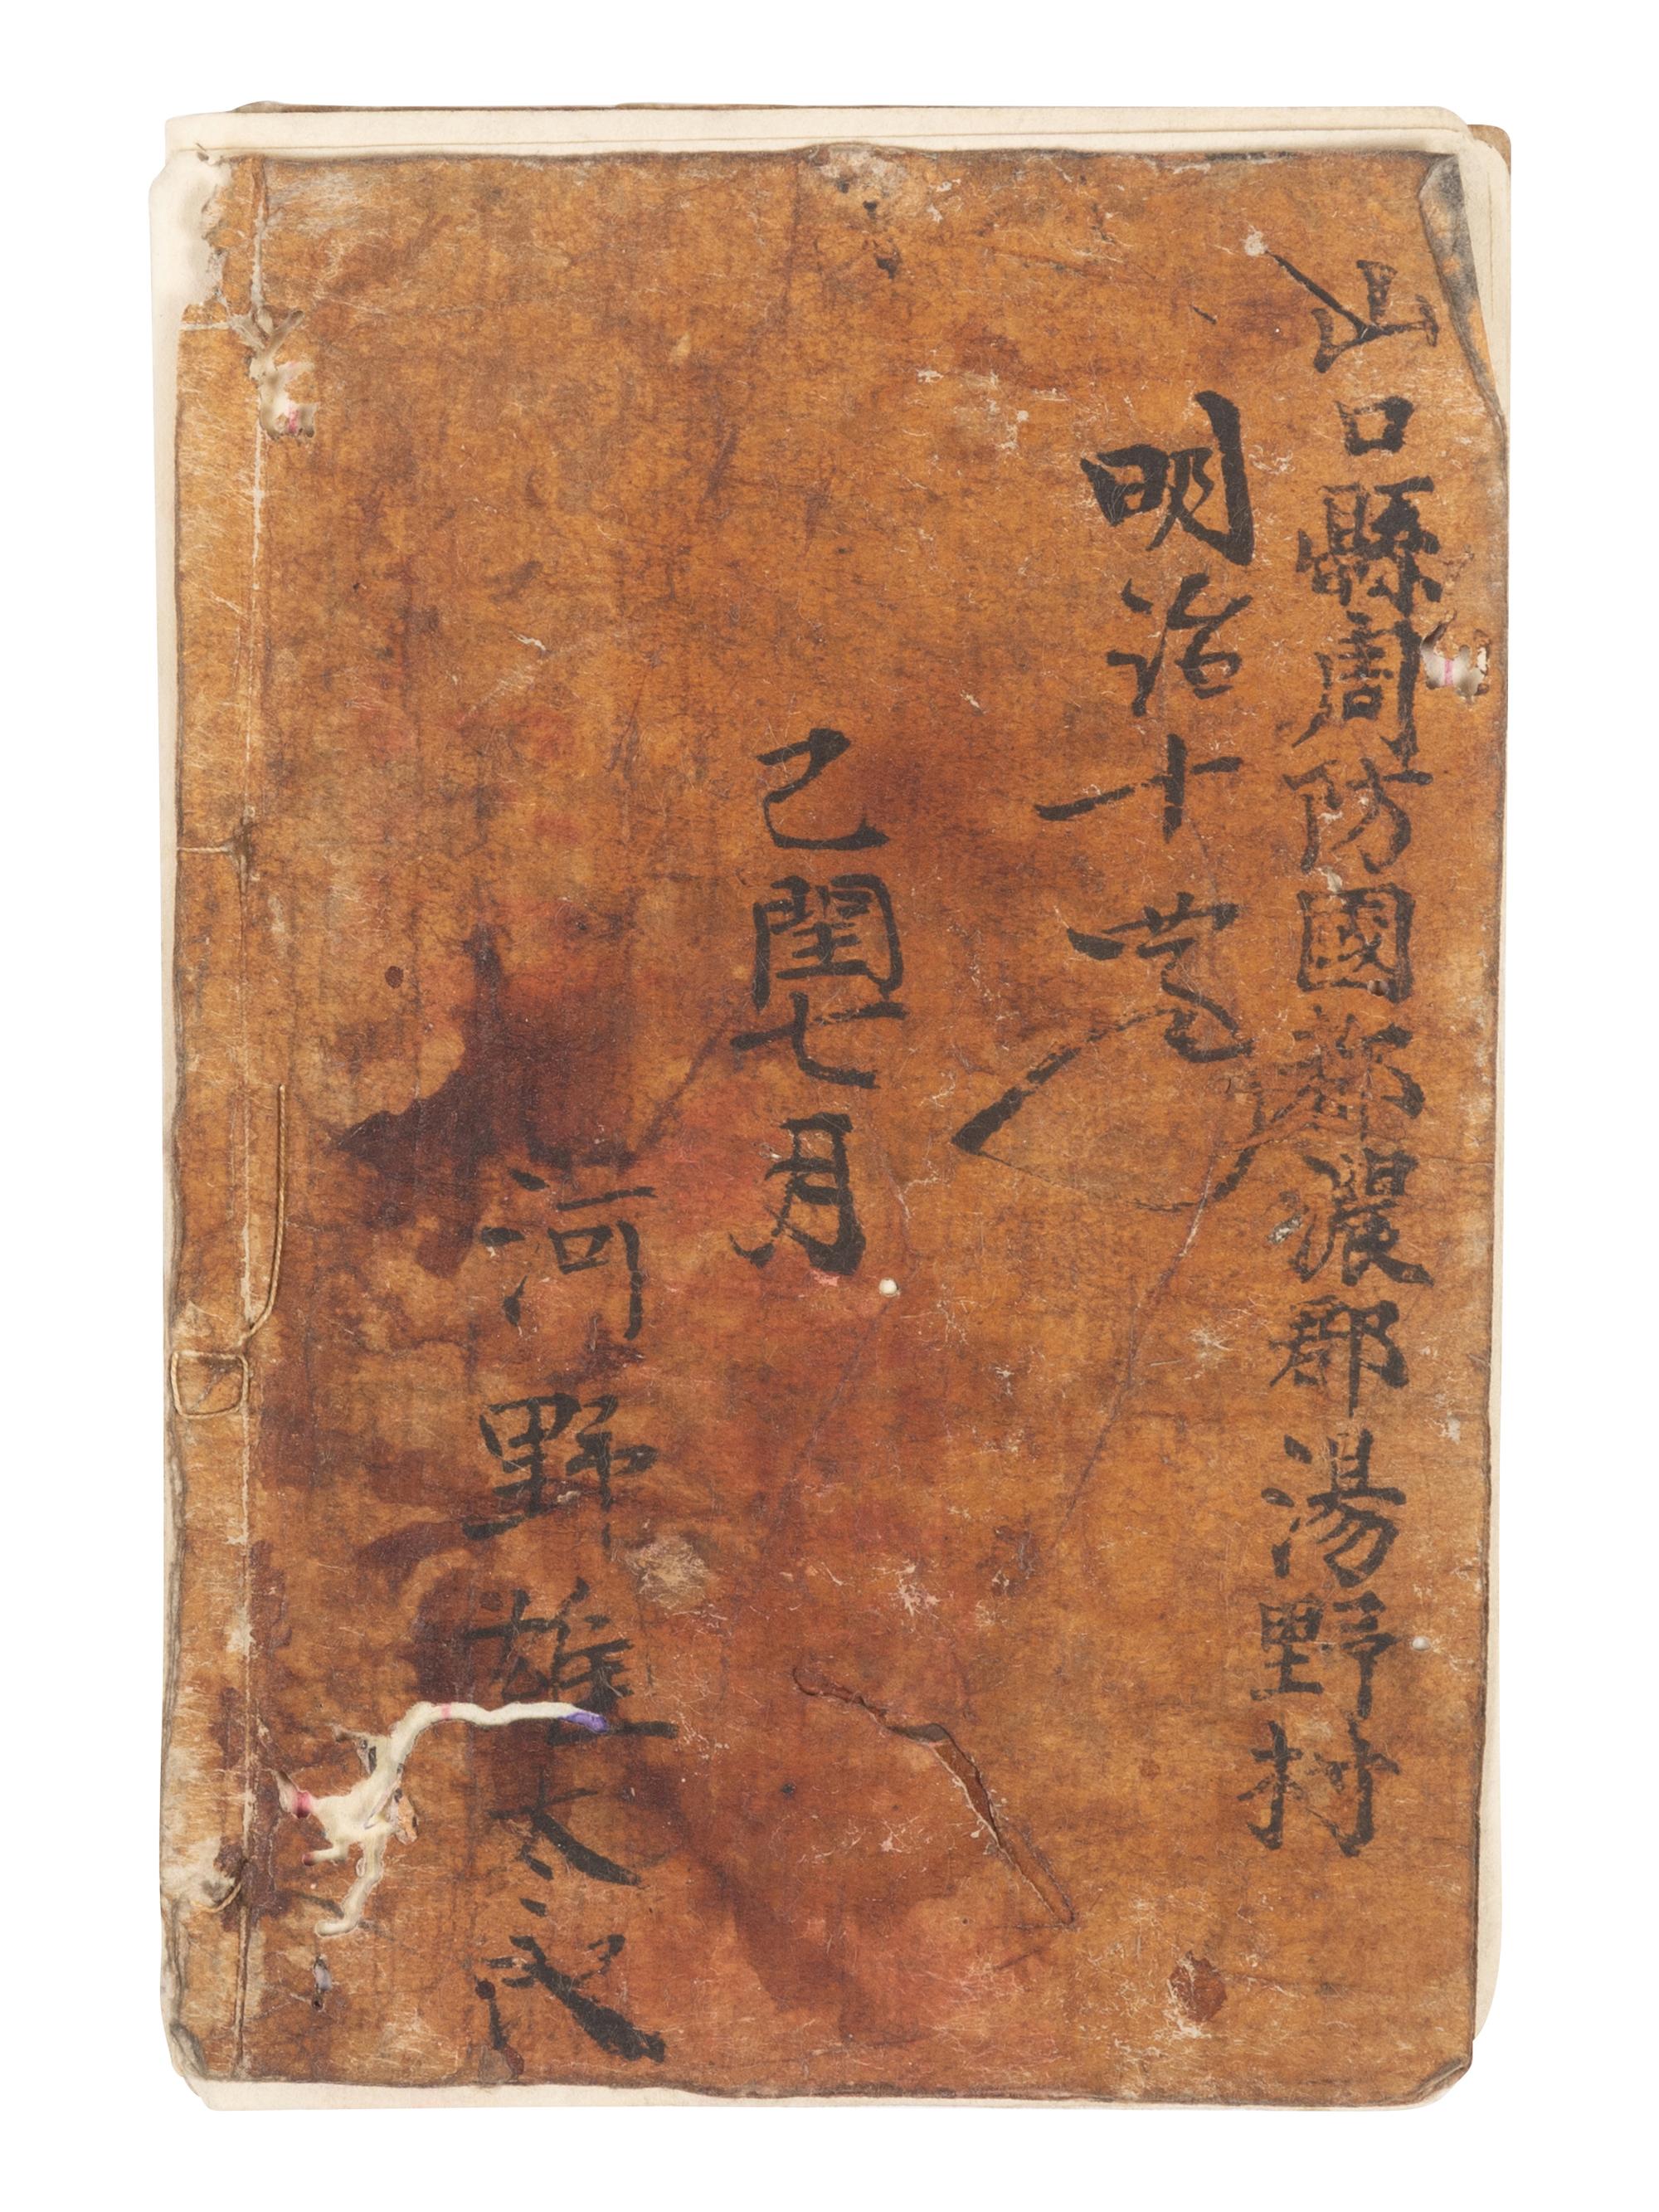 山口縣周防國都濃郡湯野村
明治十
己閏七月
河野雄太郎